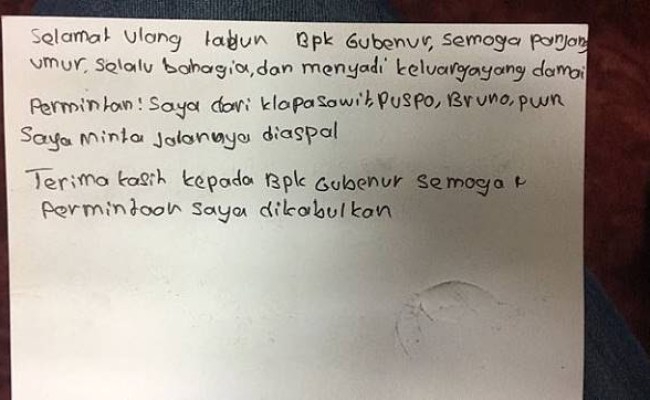 Selamat Ulang tahun Bpk Gubenur, semoga panjang
umur, selalu bahagia, dan menyadi keluargayang damai
Permintan: Saya dari klapasawit, PUSPO, Bruno, pwr
Saya minta Jalannya diaspal
Terima kasih kepada Bpk Gubenur semoga
Permintaan saya dikabulkan